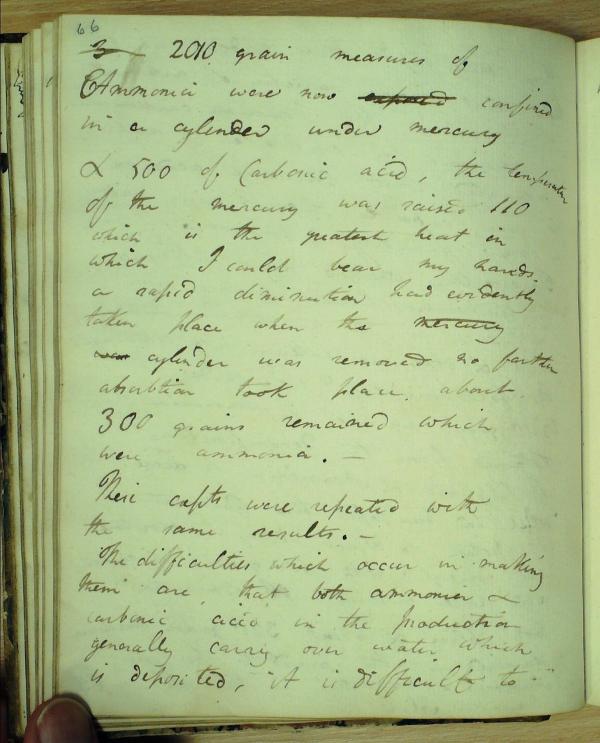 66
3 2010 grain measures of
Ammonia were now exposed confined
in a cylender under mercury
& 500 of Carbonic acid, the temperature
of the mercury was raised 110
which is the greatest heat in
which I could bear my hands.
a rapid diminution had evidently
taken place when the mercury
was cylinder was removed no farther
absorbtion took place. about
300 grains remained which
were ammonia. —
These expts were repeated with
the same results. —
The difficulties which occur in making
them are, that both ammonia &
carbonic acid in the production
generally carry over water which
is deposited, it is difficult to